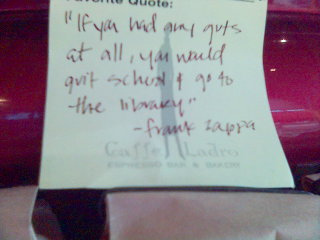 Favorite Quote:
"If you had any guts
at all, you would
quit school & go to
the library"
-frank zappa
Caffe Ladro
ESPRESSO BAR & BAKERY